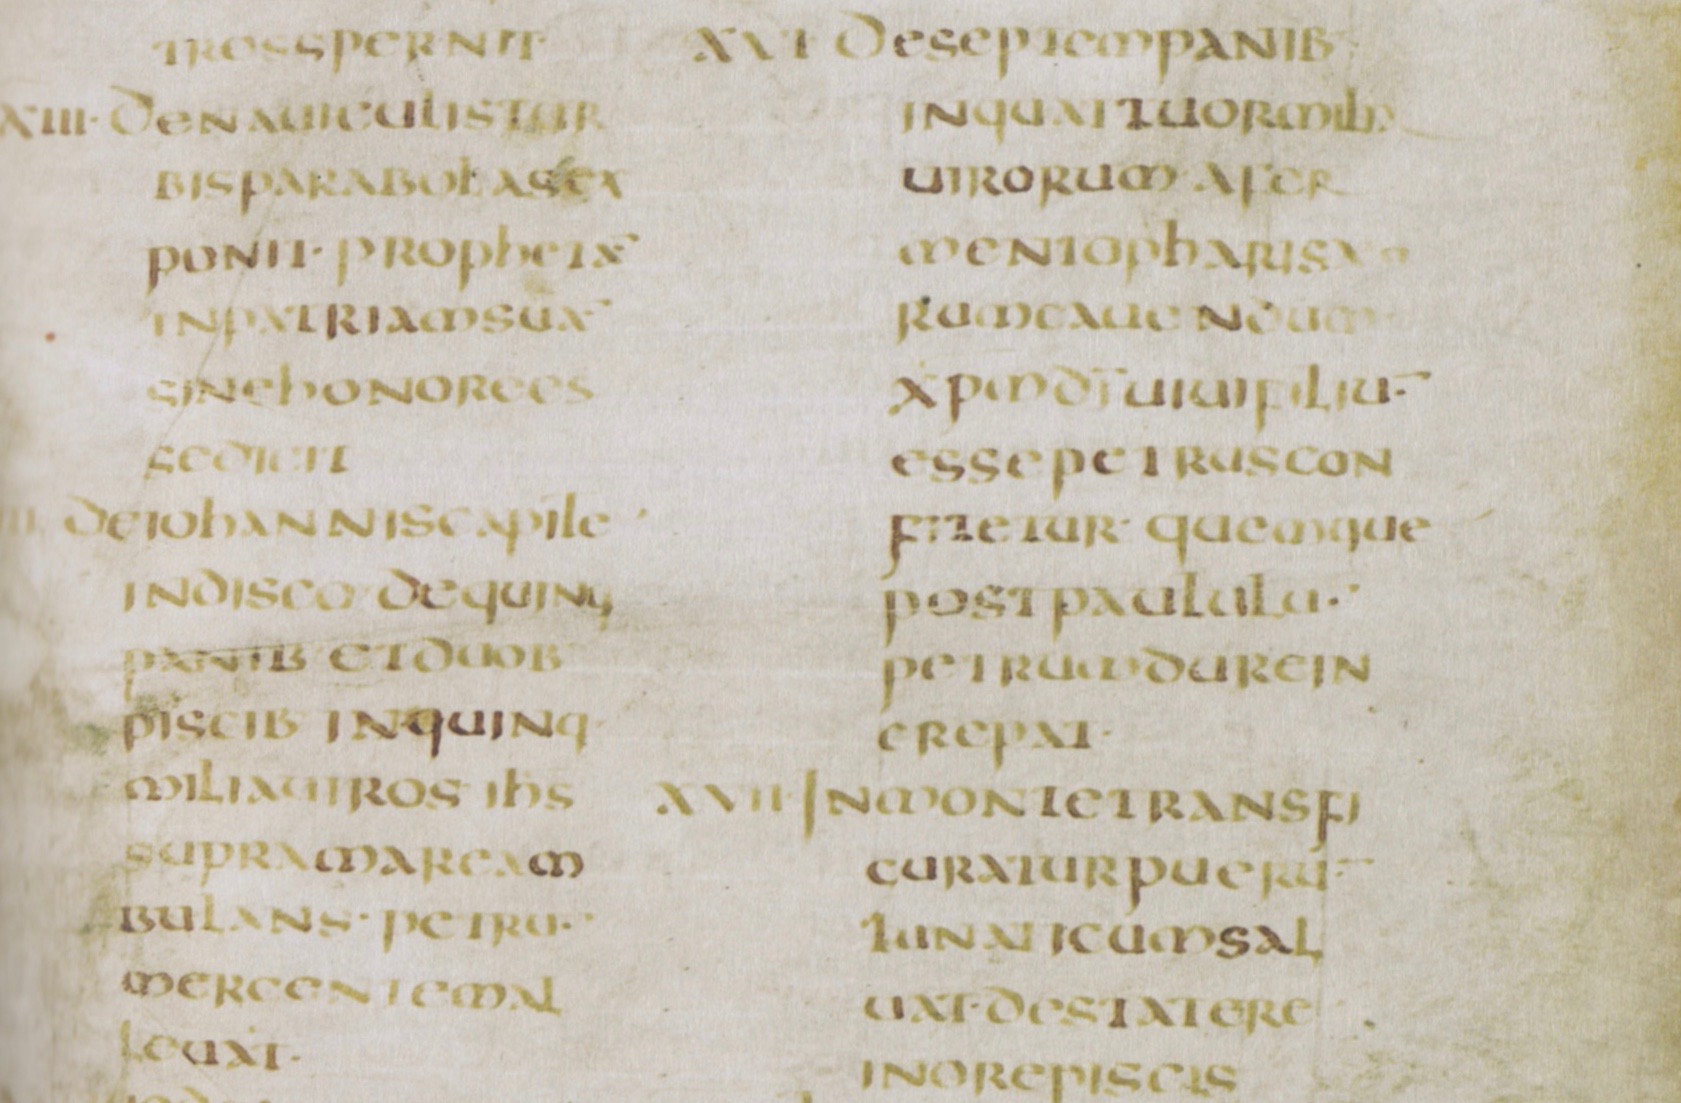 TROSSPERNIT·
XIII· DENAUICULISTUR
BISPARABOLASEX
PONIT· PROPHETĀ
INPATRIAMSUĀ
SINEHONOREES
SEDICIT
DEIOHANNISCAPITE
INDISCO·DEQUINQ
PANIB· ETDUOB·
PISCIB· INQUINQ·
MILIAUIROS· IHS
SUPRAMAREAM
BULANS· PETRŪ·
MERGENTEMAL
LEUAT·
XVI DESEPTEMPANIB·
INQUATTUORMILIB·
UIRORUM· AFER
MENTOPHARISAEO
RUMCAUENDUM
XPMDĪUIUIFILIŪ·
ESSEPETRUSCON
FITETUR· QUEMQUE
POSTPAULULŪ·
PETRUMDUREIN
CREPAT·
XVII· INMONTETRANSFI
GURATURPUERŪ
LUNATICUMSAL
UAT·DESTATERE
INOREPISCIS